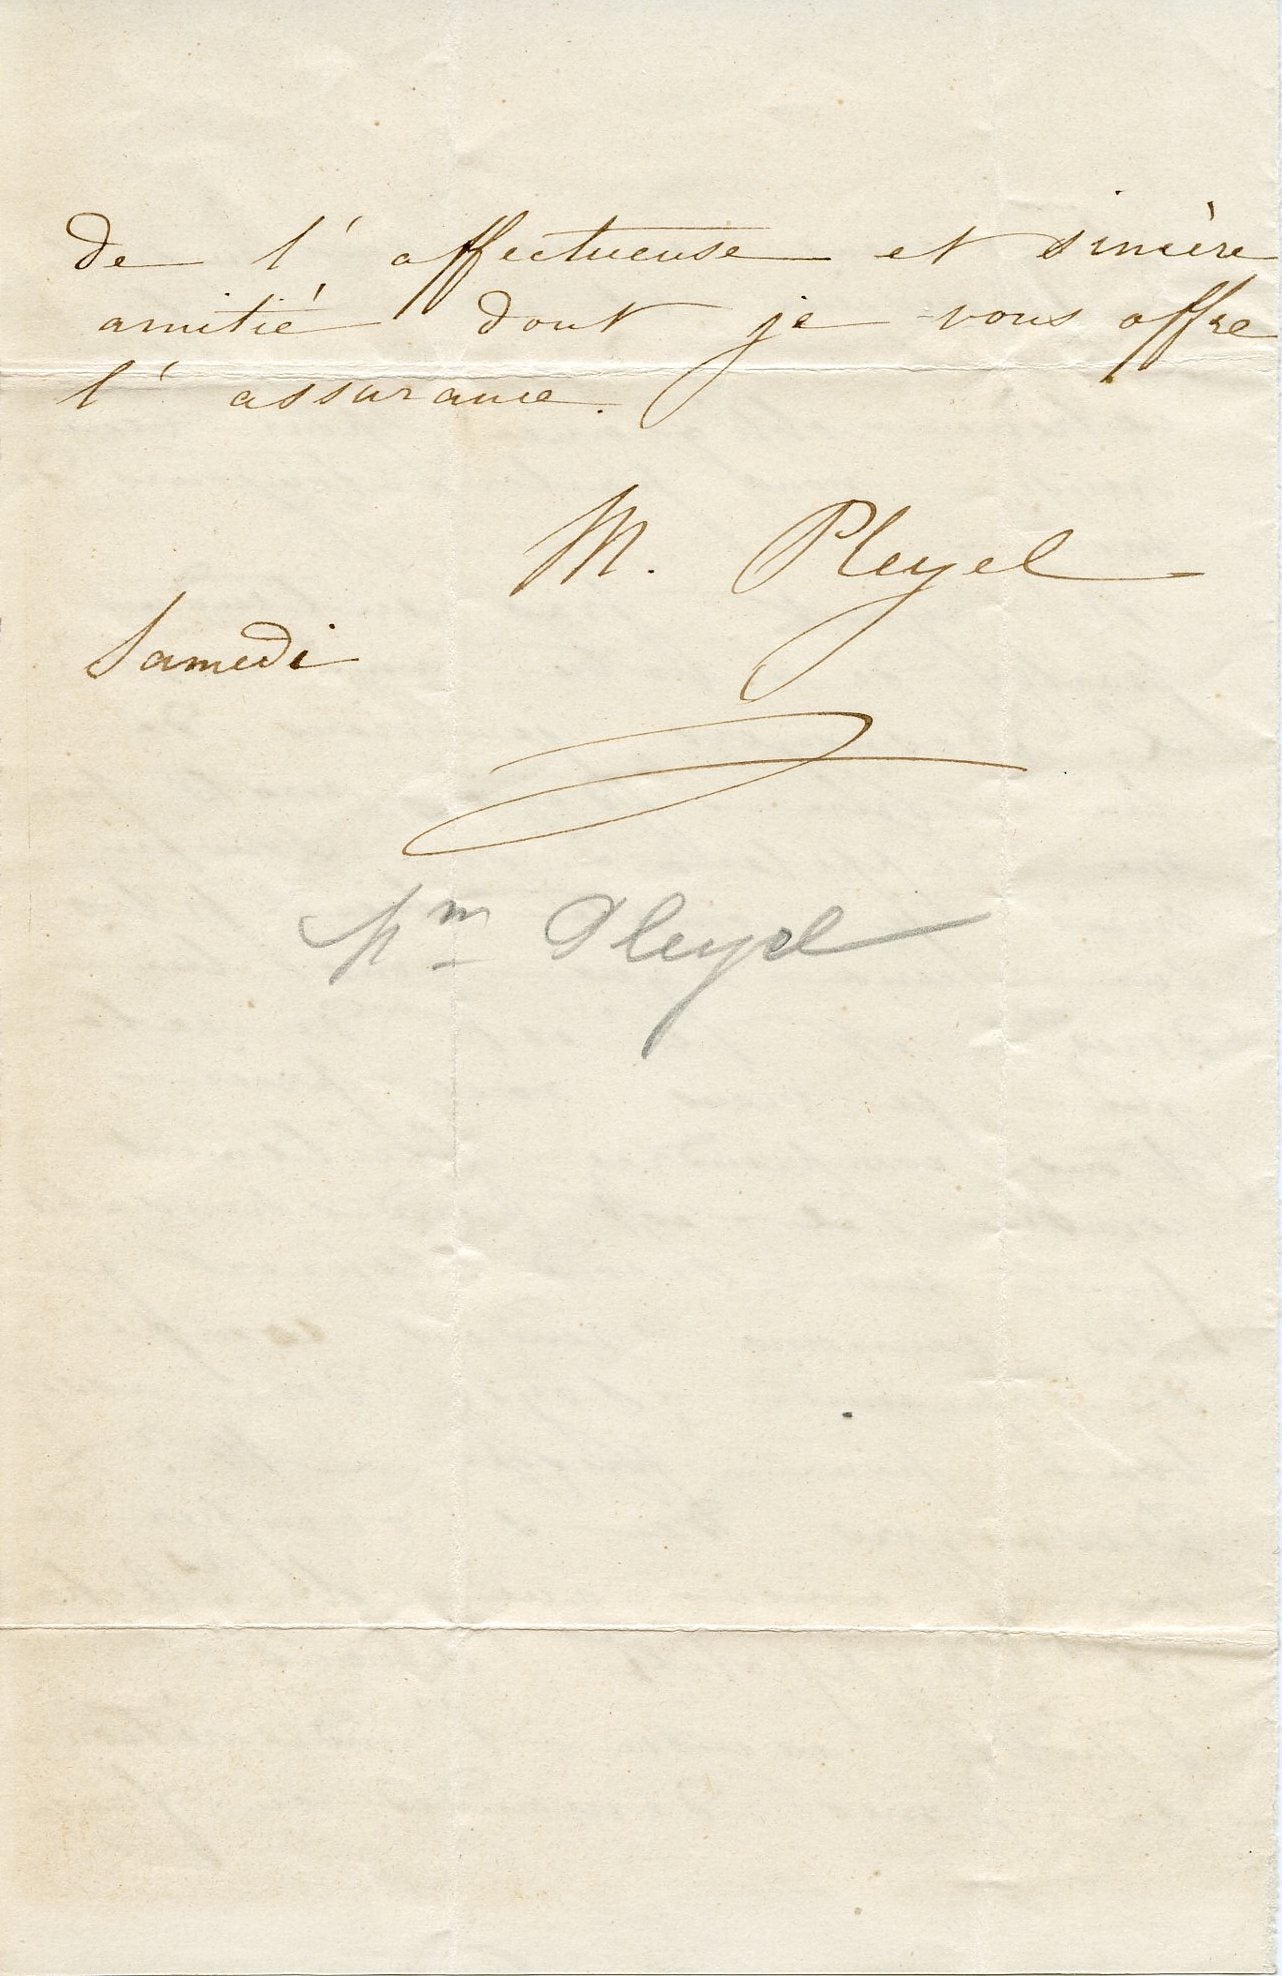 de l'affectueuse et sincère
amitié dont je vous offre
l'assurance.
M. Pleyel
Samedi
Mm Pleyel